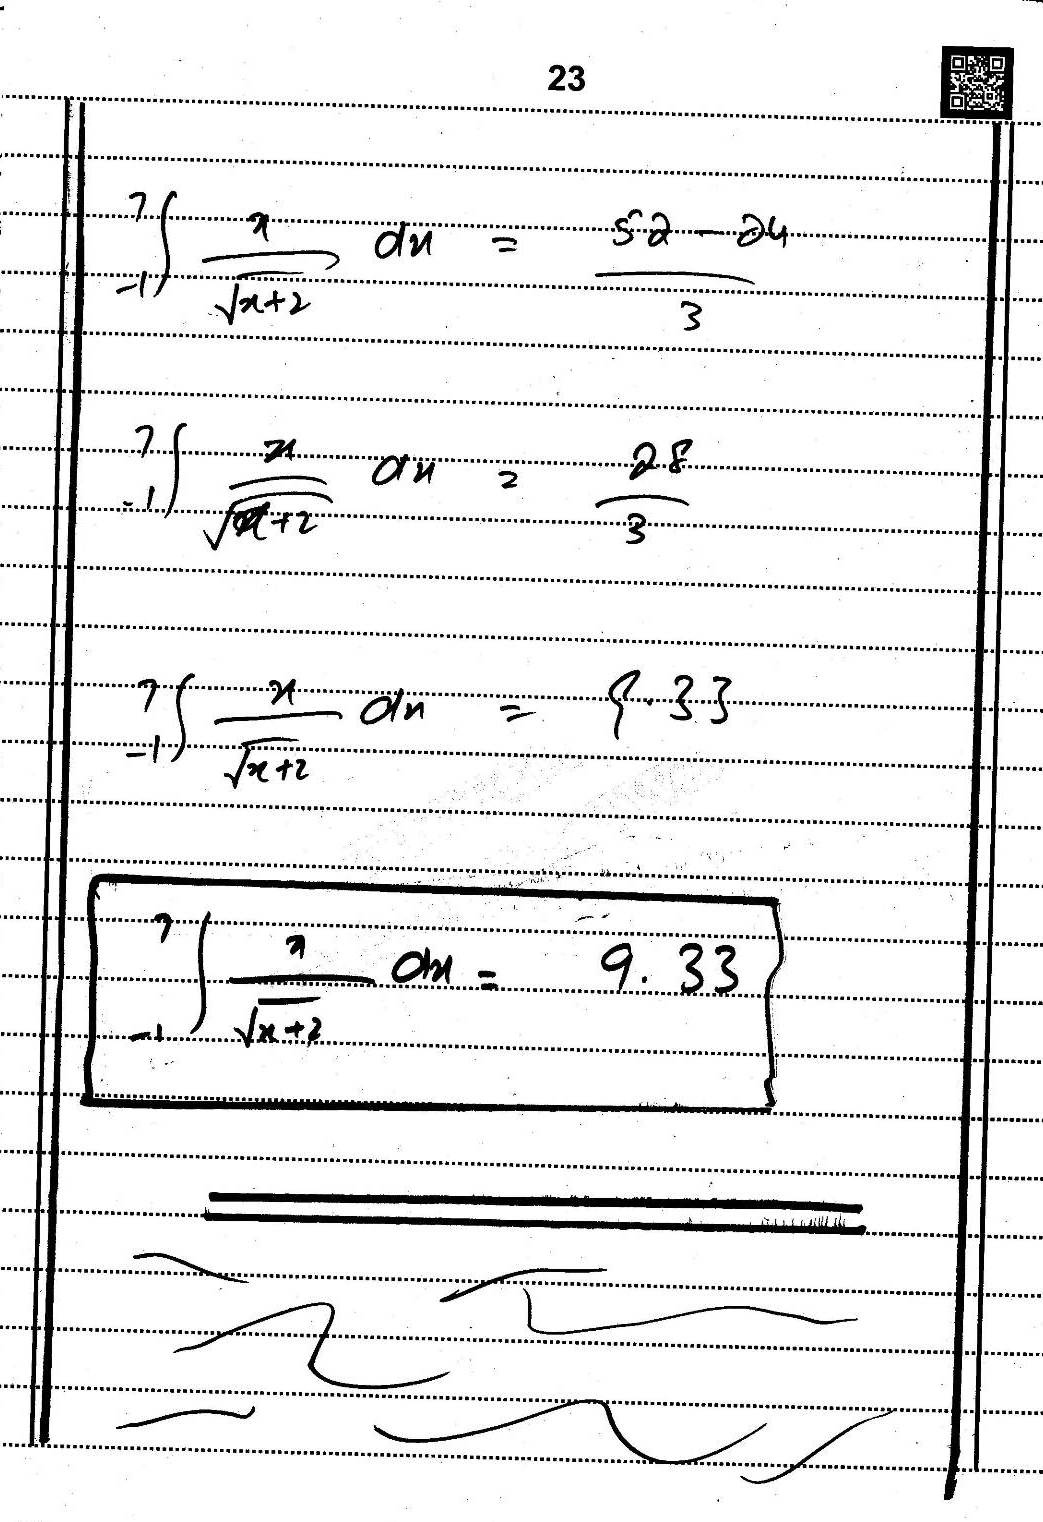 23
7∫-1 x/√x+2 dx = 52 - 24/3
7∫-1 x/√x+2 dx = 28/3
7∫-1 x/√x+2 dx = 9.33
7∫-1 x/√x+2 dx = 9.33